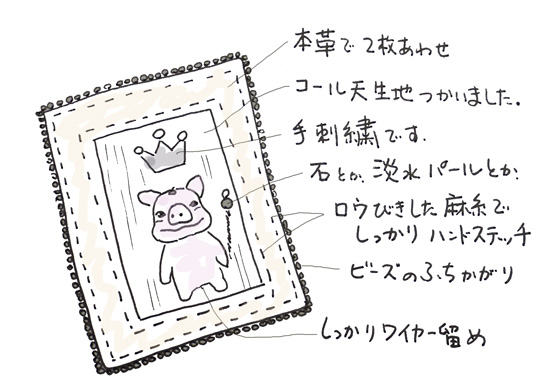 本革で2枚あわせ
コール天生地つかいました.
手刺繍です.
石とか、淡水パールとか.
ロウびきした麻糸で
しっかりハンドステッチ
ビーズのふちかがり
しっかりワイヤー留め